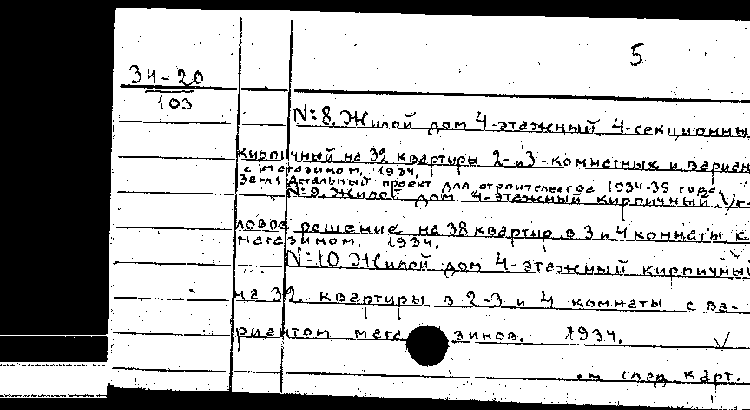 5
34-20
103
№8. Жилой дом 4-этажный 4-секционны
кирпичный на 32 квартиры 2-и 3-комнатных и вариан
с магазином. 1934.
Детальный проект для строительства 1934-35 года.
№9. Жилой дом 4-этажный кирпичный
ловое решение на 38 квартир в 3 и 4 комнаты с
магазином. 1934.
№10. Жилой дом 4-этажный кирпичный
на 32 квартиры в 2-3 и 4 комнаты с ва-
риантом мага зинов. 1934. V
см след карт.